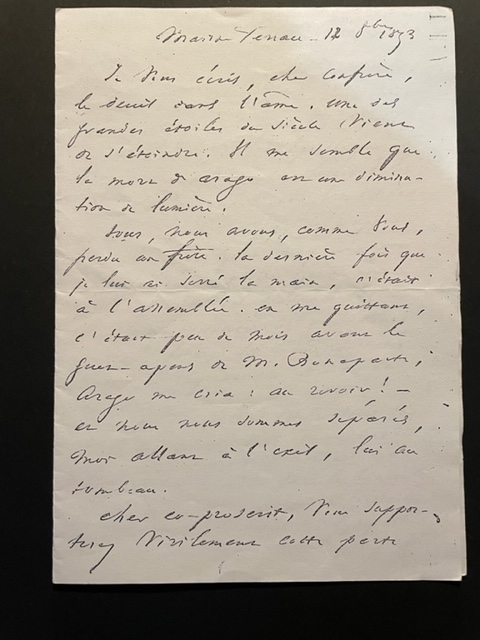 Marine Terrace - 12 8bre 1853
Je vous écris, cher confrère,
le deuil dans l'âme. une des
grandes étoiles du siècle vient
de s'éteindre. Il me semble que
la mort d'arago est une diminu-
tion de lumière.
nous avons, comme vous,
perdu un frère. la dernière fois que
je lui ai serré la main, c'était
à l'assemblée. en me quittant,
c'était peu de mois avant le
guet-apens de M. Bonaparte,
Arago me cria : au revoir ! -
et nous nous sommes séparés,
moi allant à l'exil, lui au
tombeau.
cher co-proscrit, vous suppor-
terez virilement cette perte